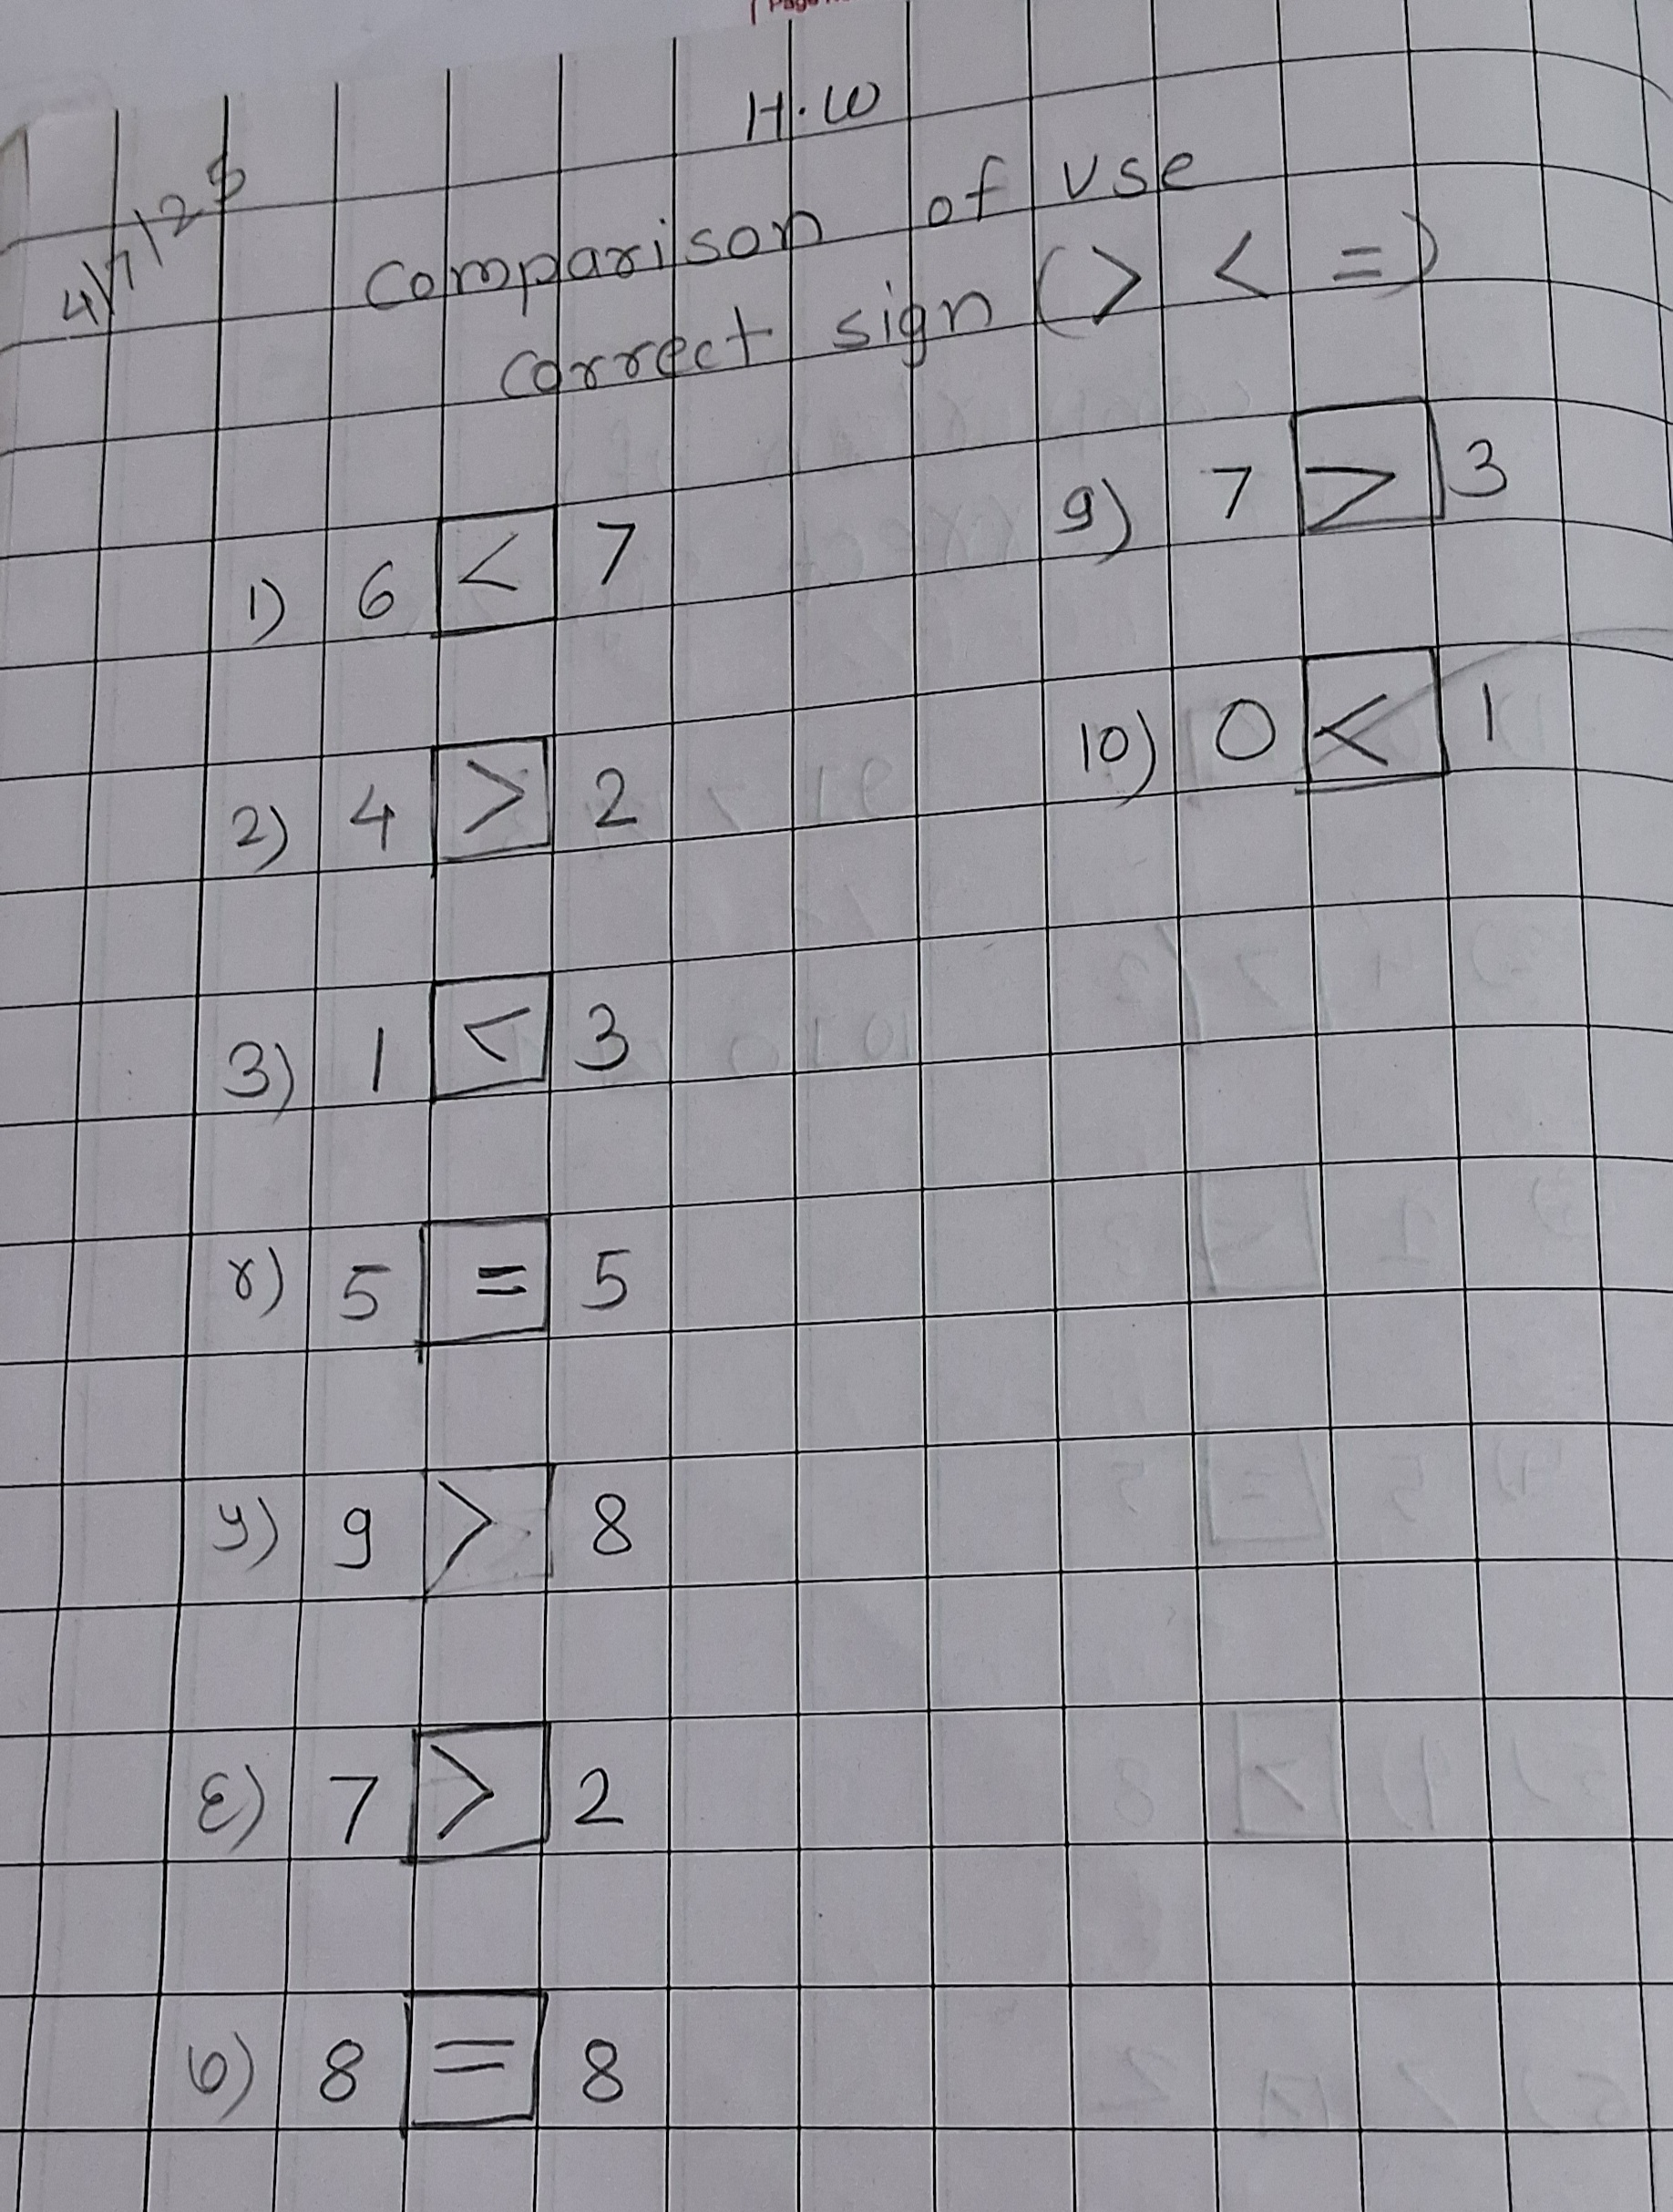 Page
H.W
4/7/25
Comparison of use
correct sign (> < =)
1) 6 < 7
2) 4 > 2
3) 1 < 3
४) 5 = 5
५) 9 > 8
६) 7 > 2
७) 8 = 8
9) 7 > 3
10) 0 < 1